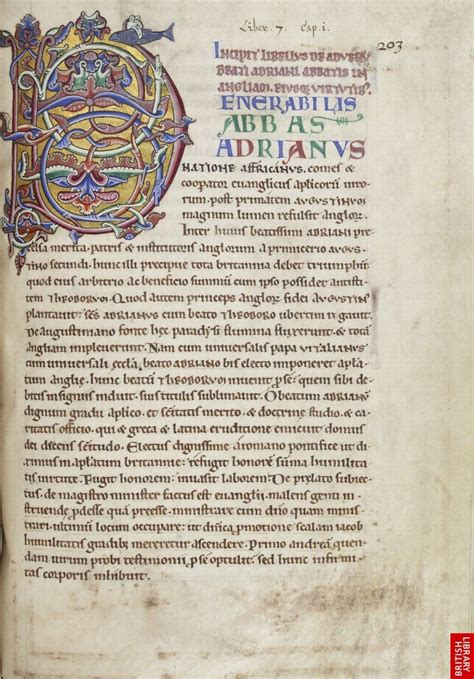 Liber. 7. Cap. i.
203
INCIPIT LIBELLUS DE ADVENTU
BEATI ADRIANI ABBATIS IN
ANGLIAM. EIUSQ; VIRTUTIB;
ENERABILIS
ABBAS
ADRIANUS
NATIONE AFFRICANUS. comes &
cooperator euanglicus aplicorū uiro-
rum. post primatem AVGUSTINVO
magnum lumen refulsit anglor.
Inter huius beatissimi ADRIANI pre
celsa merita. patris & institutoris anglorum a primicerio AVGVS-
TINO secundi. hunc illi precipue tota britannia debet triumphū
quod eius arbitrio ac beneficio summū cum ipso possidet antisti-
tem THEODORVO. Quod autem princeps anglor fidei AVGUSTIN
plantauit: scs ADRIANUS cum beato THEODORO ubertim rigauit.
De augustiniano fonte hec paradysi flumina fluxerunt. & totā
angliam impleuerunt. Nam cum uniuersalis papa VITALIANUS
cum uniuersali eccla. beato ADRIANO bis electo imponeret aplā-
tum anglie. hunc beatū THEODORVO inuenit p se. quem sibi de-
bitis insignis induit. suis titulis sublimauit. O beatum ADRIANŪ
dignum gradu aplico. et scitatis merito. & doctrine studio. & ca-
ritatis officio. qui & greca & latina eruditione enicuit. domus
dei decens scitudo. Electus dignissime a romano pontifice ut di-
uinum in aplatum britannie: refugit honorē summa humilita
tis uirtute. Fugit honorem: inuasit laborem. De prelato subiec-
tus. de magistro minister factus est euanglii. malens genti in-
struende pdesse quā preesse. ministrare cum dño quam minis-
trari. ultimū locum occupare: ut diuica pmotione scalam iacob
humilitatis gradib; mereretur ascendere. Primo andreā quen-
dam uirum probi testimonii. p se optulit. sed hunc infirmi-
tas corporis inhibuit.
BRITISH
LIBRARY